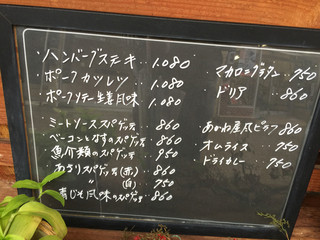 ・ハンバーグステーキ 1.080
・ポークカツレツ 1.080
・ポークソテー生姜風味 1.080
・ミートソーススパゲッティ 860
・ベーコンとなすのスパゲッティ 860
・魚介類のスパゲッティ 950
・あさりスパゲッティ(赤) 860
〃 (白) 750
・青じそ風味のスパゲッティ 860
・マカロニグラタン 750
・ドリア 860
・あかね屋風ピラフ 860
・オムライス 750
・ドライカレー 750